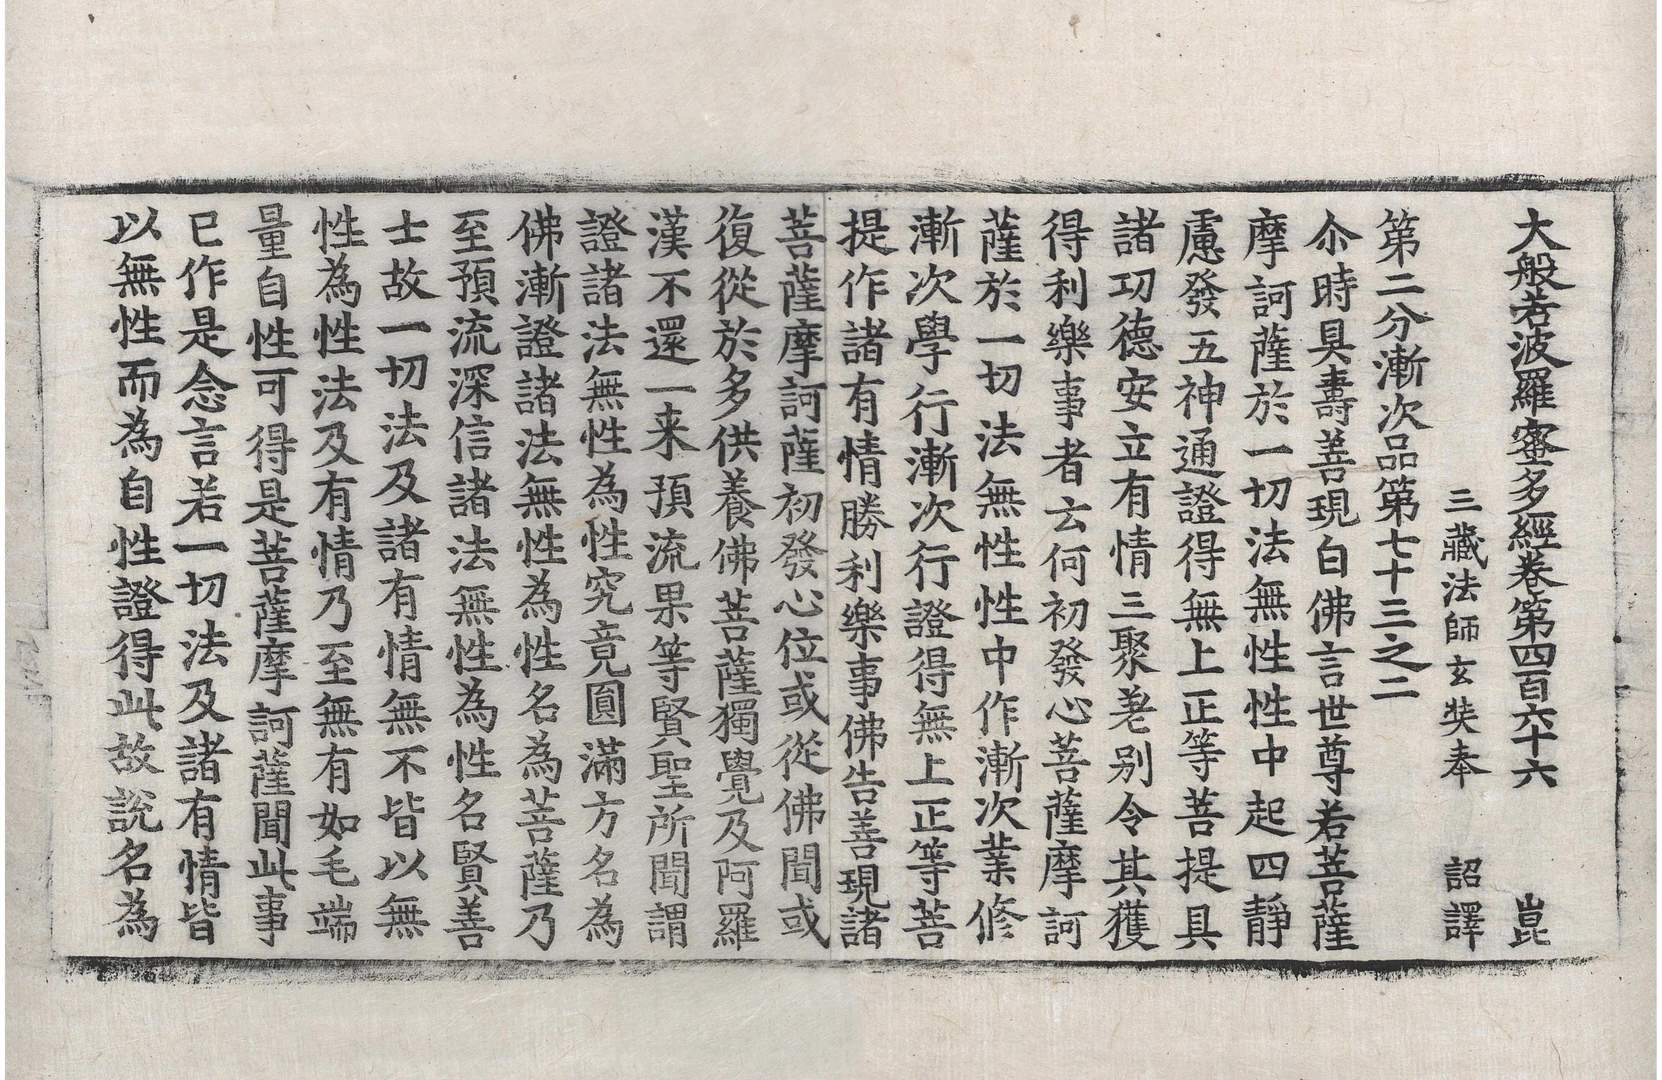 大般若波羅蜜多經卷第四百六十六 崑
三藏法師玄奘奉 詔譯
第二分漸次品第七十三之二
尒時具壽善現白佛言世尊若菩薩
摩訶薩於一切法無性性中起四靜
慮發五神通證得無上正等菩提具
諸功德安立有情三聚差別令其獲
得利樂事者云何初發心菩薩摩訶
薩於一切法無性性中作漸次業修
漸次學行漸次行證得無上正等菩
提作諸有情勝利樂事佛告善現諸
菩薩摩訶薩初發心位或從佛聞或
復從於多供養佛菩薩獨覺及阿羅
漢不還一来預流果等賢聖所聞謂
證諸法無性為性究竟圓滿方名為
佛漸證諸法無性為性名為菩薩乃
至預流深信諸法無性為性名賢善
士故一切法及諸有情無不皆以無
性為性法及有情乃至無有如毛端
量自性可得是菩薩摩訶薩聞此事
已作是念言若一切法及諸有情皆
以無性而為自性證得此故說名為